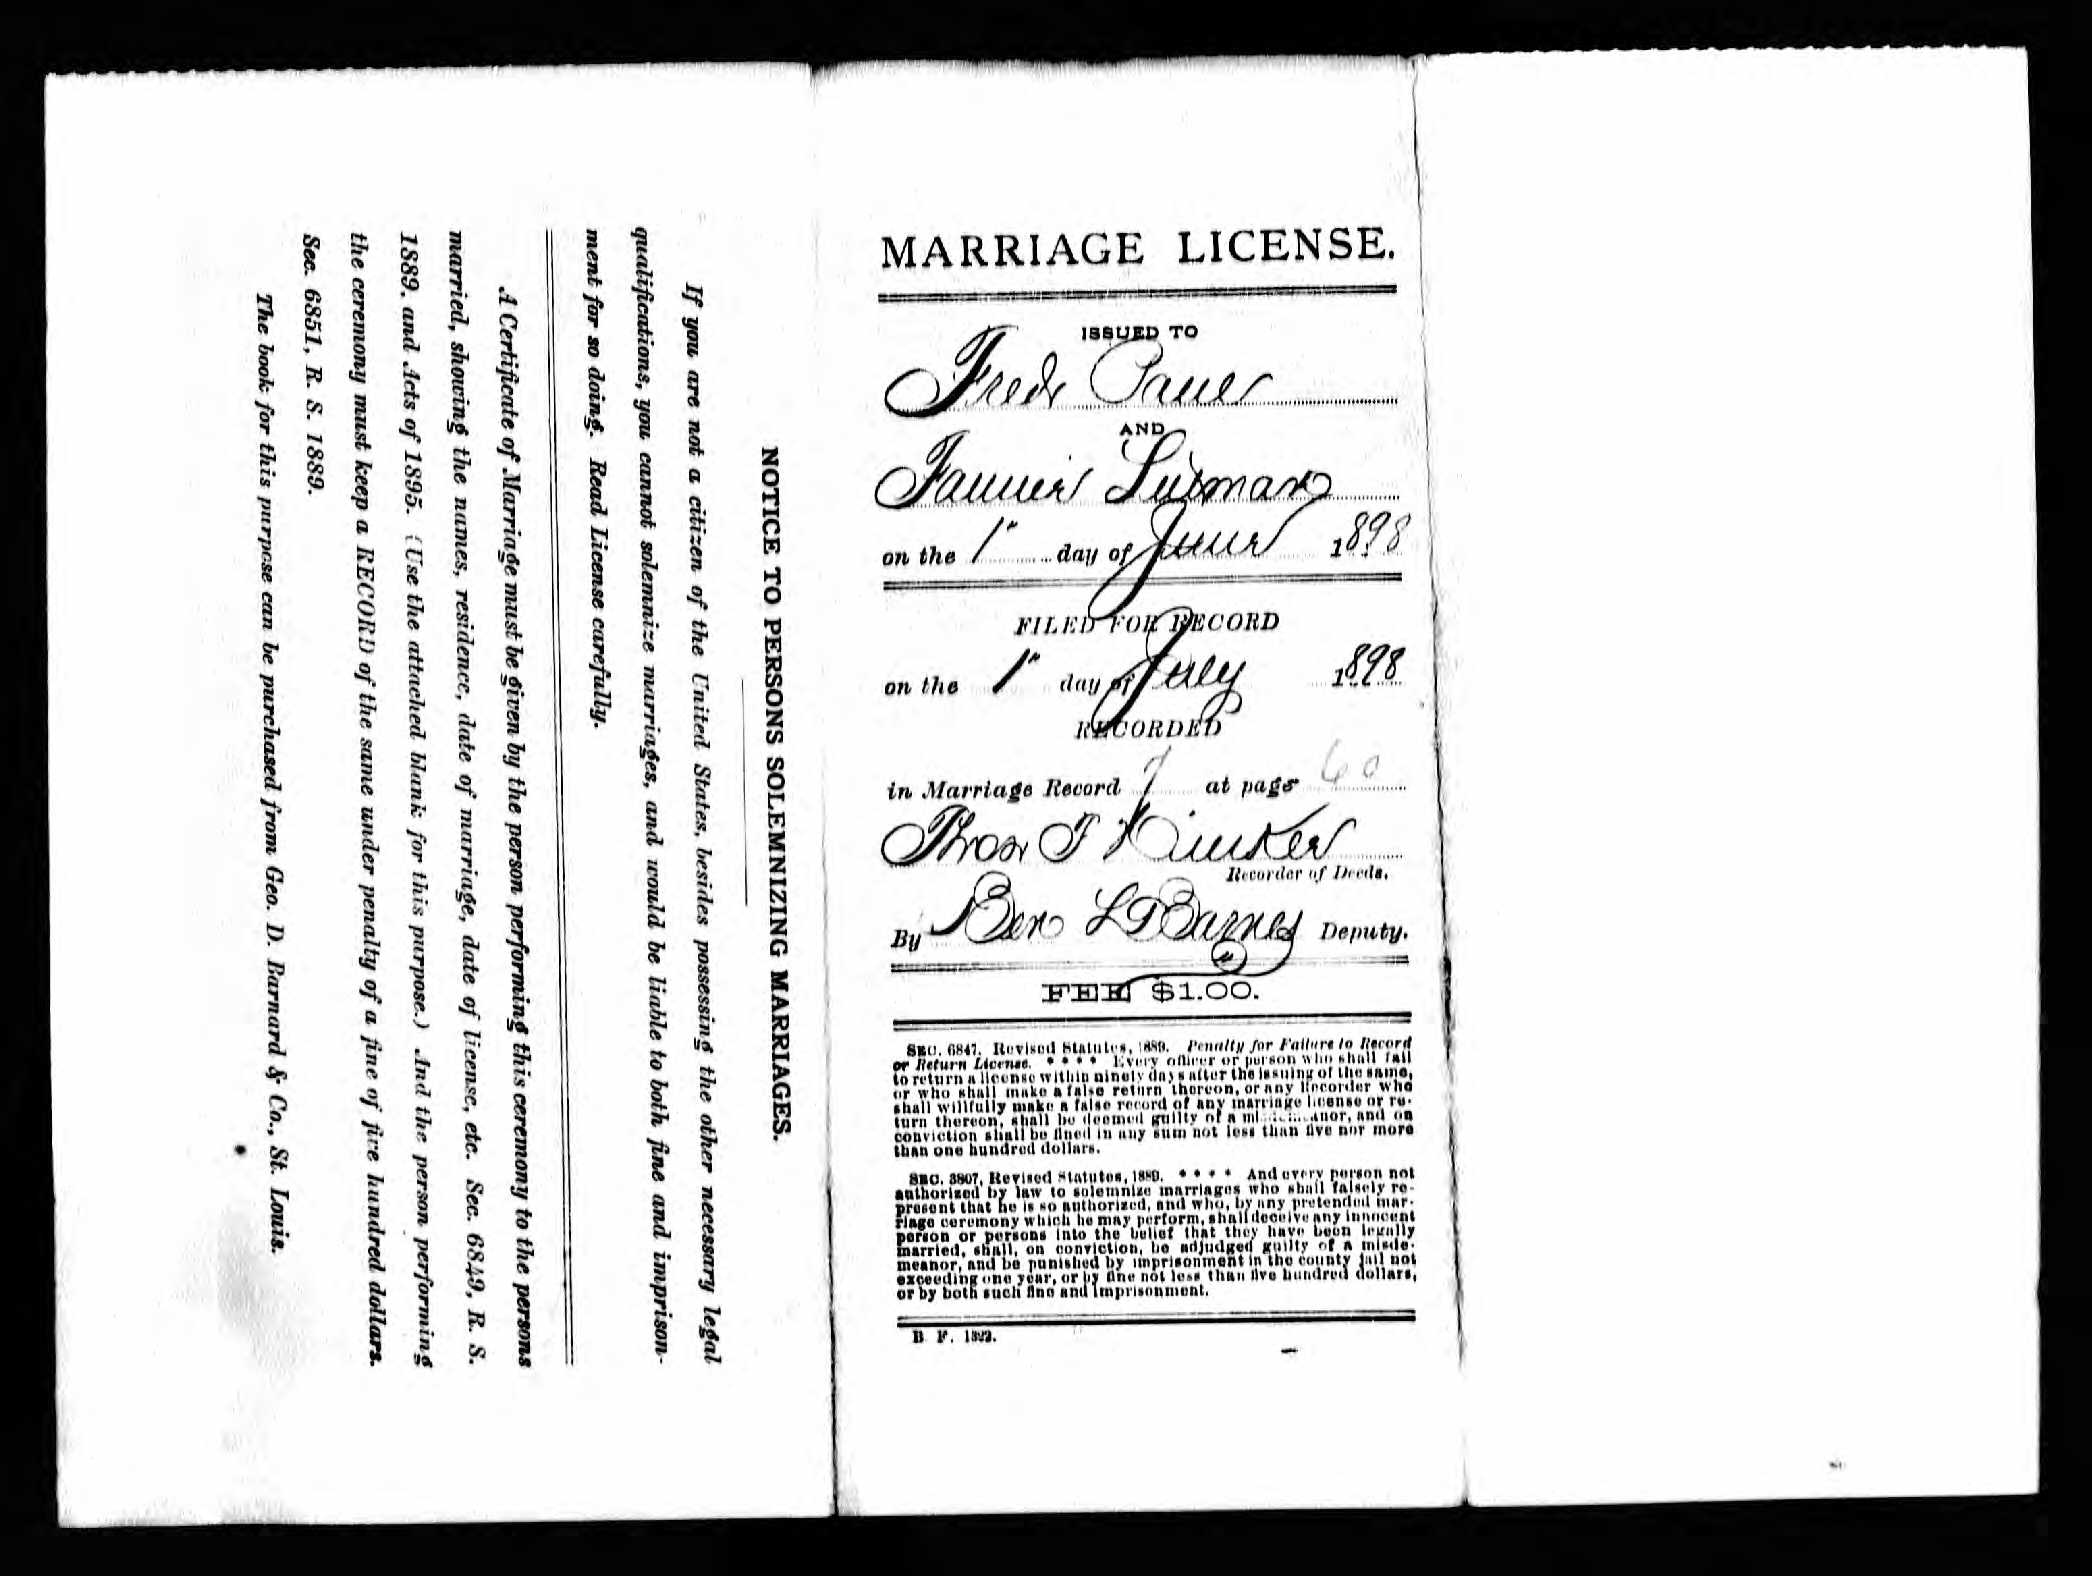 NOTICE TO PERSONS SOLEMNIZING MARRIAGES.
If you are not a citizen of the United States, besides possessing the other necessary legal
qualifications, you cannot solemnize marriages, and would be liable to both fine and imprison-
ment for so doing. Read License carefully.
A Certificate of Marriage must be given by the person performing this ceremony to the persons
married, showing the names, residence, date of marriage, date of license, etc. Sec. 6849, R. S.
1889, and Acts of 1895. (Use the attached blank for this purpose.) And the person performing
the ceremony must keep a RECORD of the same under penalty of a fine of five hundred dollars.
Sec. 6851, R. S. 1889.
The book for this purpose can be purchased from Geo. D. Barnard & Co., St. Louis.
MARRIAGE LICENSE.
ISSUED TO
Fred Paul
AND
Fannie
on the 1" day of June 1898
FILED FOR RECORD
on the 1" day of July 1898
RECORDED
in Marriage Record at page 60
Thos F
Recorder of Deeds.
By Ben L D Barnes Deputy.
FEE $1.00.
SEC. 6847. Revised Statutes, 1889. Penalty for Failure to Record
or Return License. * * * * Every officer or person who shall fail
to return a license within ninety days after the issuing of the same,
or who shall make a false return thereon, or any Recorder who
shall willfully make a false record of any marriage license or re-
turn thereon, shall be deemed guilty of a misdemeanor, and on
conviction shall be fined in any sum not less than five nor more
than one hundred dollars.
SEC. 3807, Revised Statutes, 1889. * * * * And every person not
authorized by law to solemnize marriages who shall falsely re-
present that he is so authorized, and who, by any pretended mar-
riage ceremony which he may perform, shall deceive any innocent
person or persons into the belief that they have been legally
married, shall, on conviction, be adjudged guilty of a misde-
meanor, and be punished by imprisonment in the county jail not
exceeding one year, or by fine not less than five hundred dollars,
or by both such fine and imprisonment.
B. F. 1322.